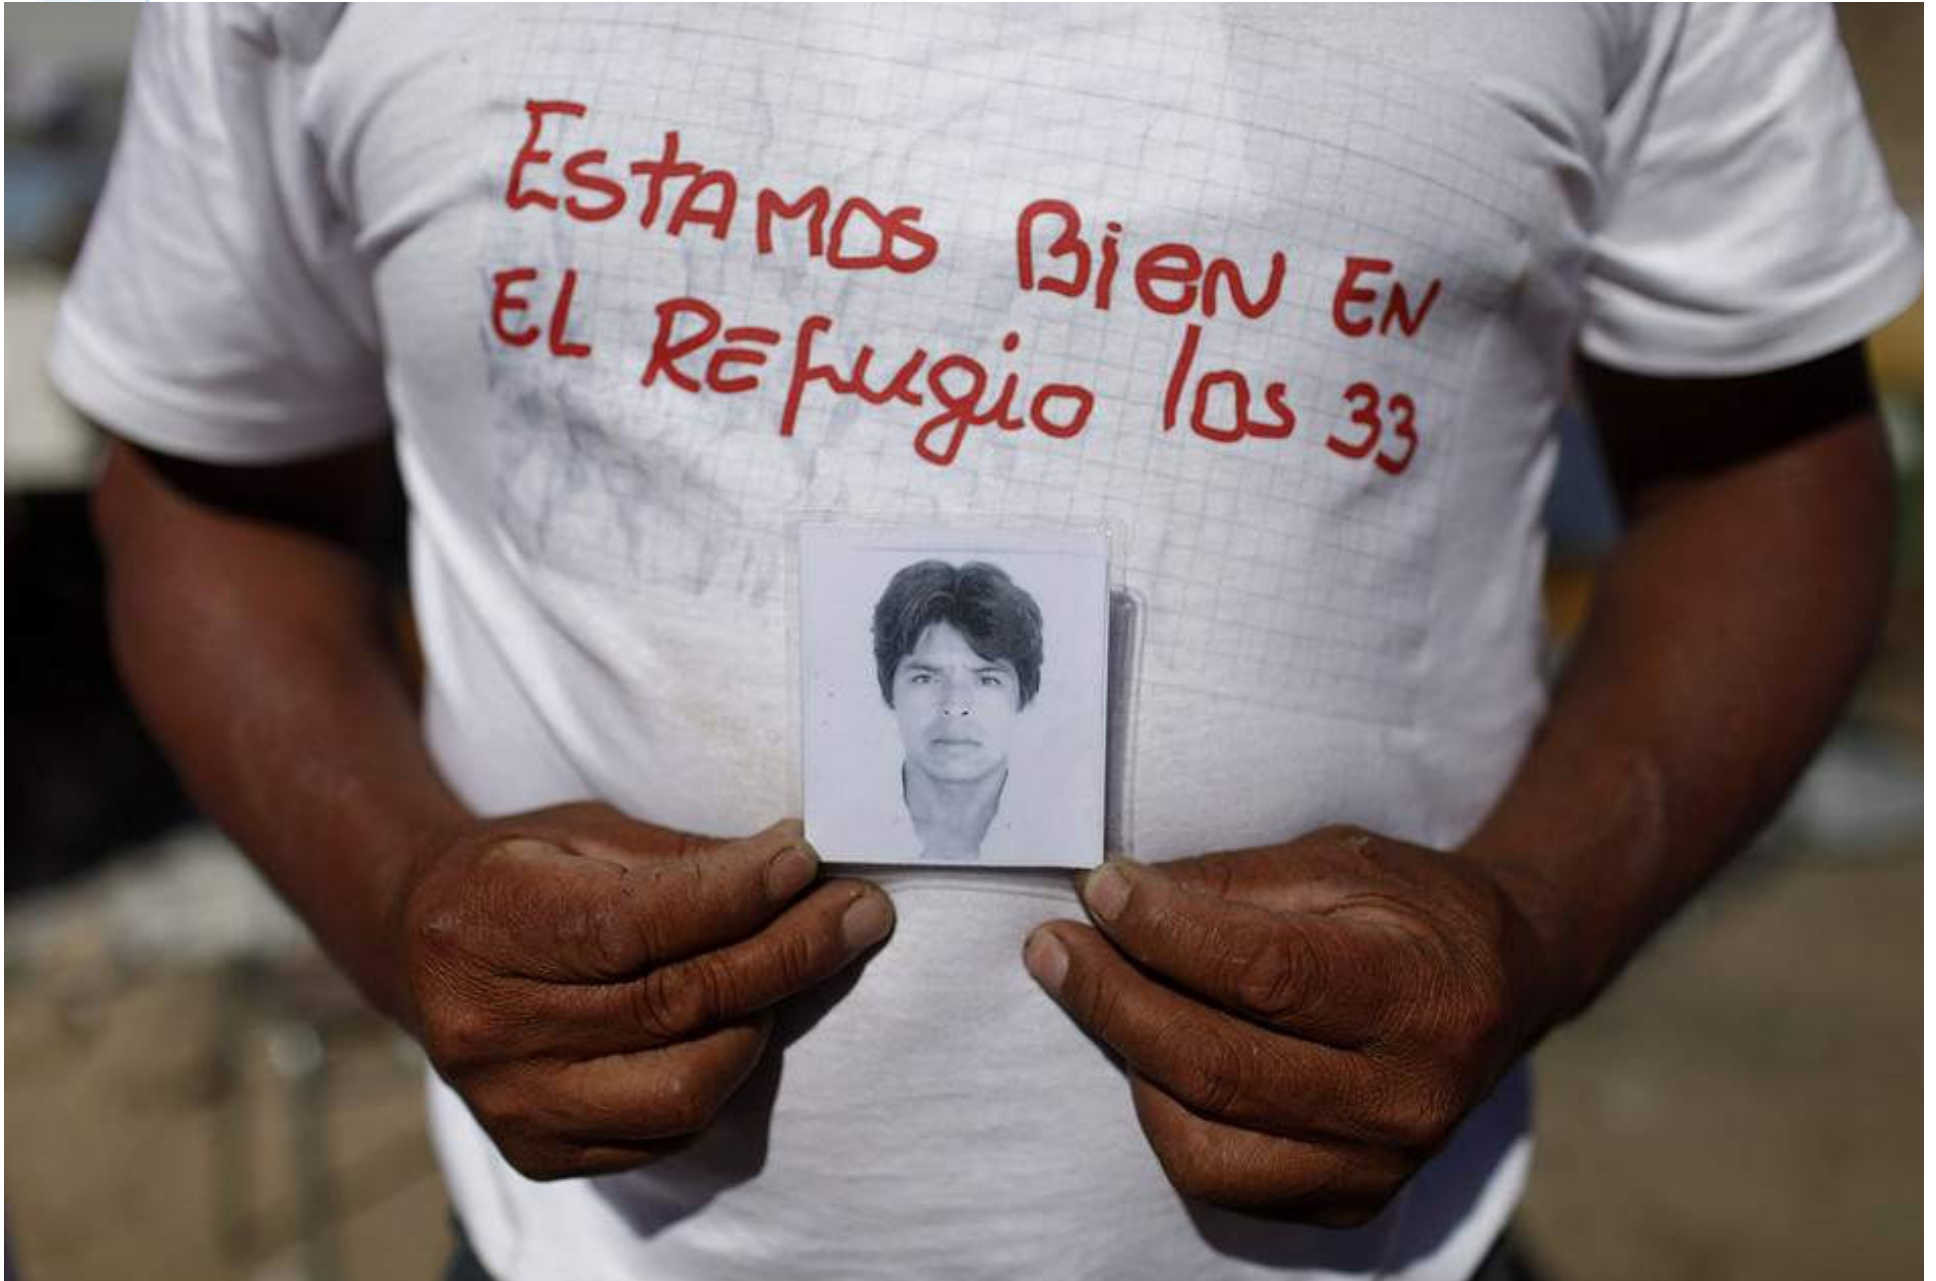 ESTAMOS BieN EN
EL REfugio los 33